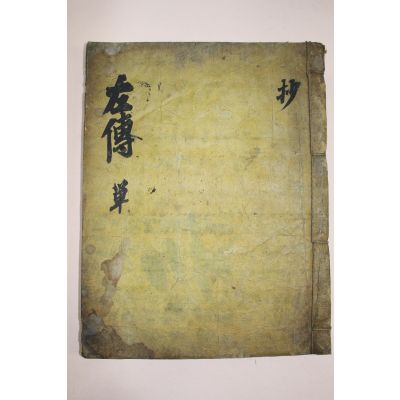 抄
左傳 單